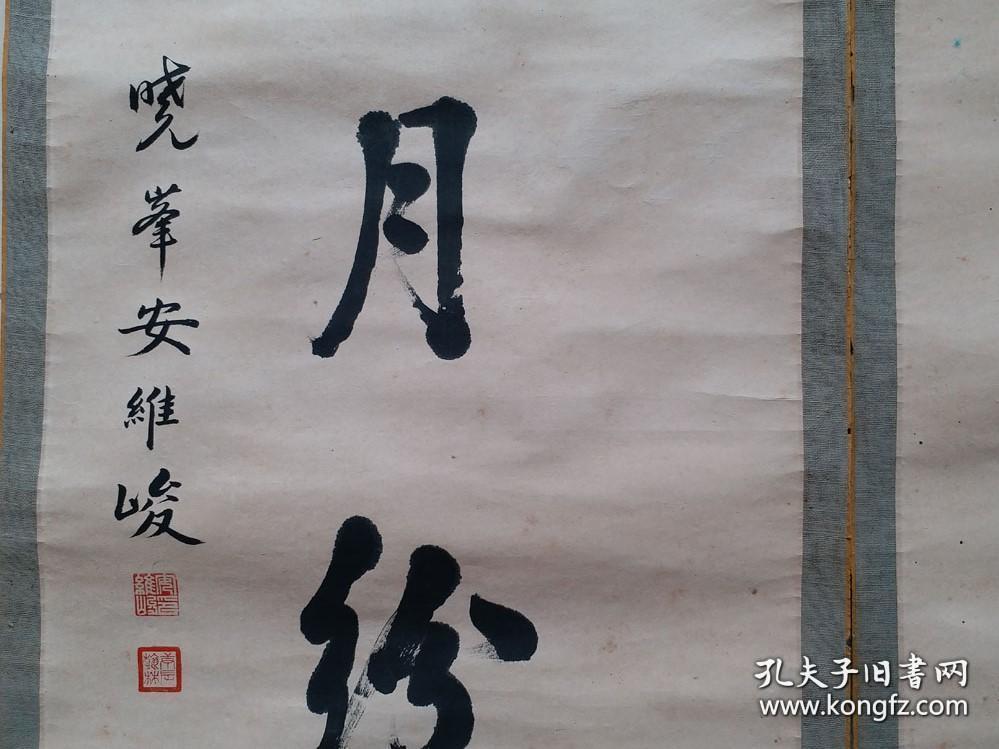 月紛
曉峯安維峻
孔夫子旧書网
www.kongfz.com